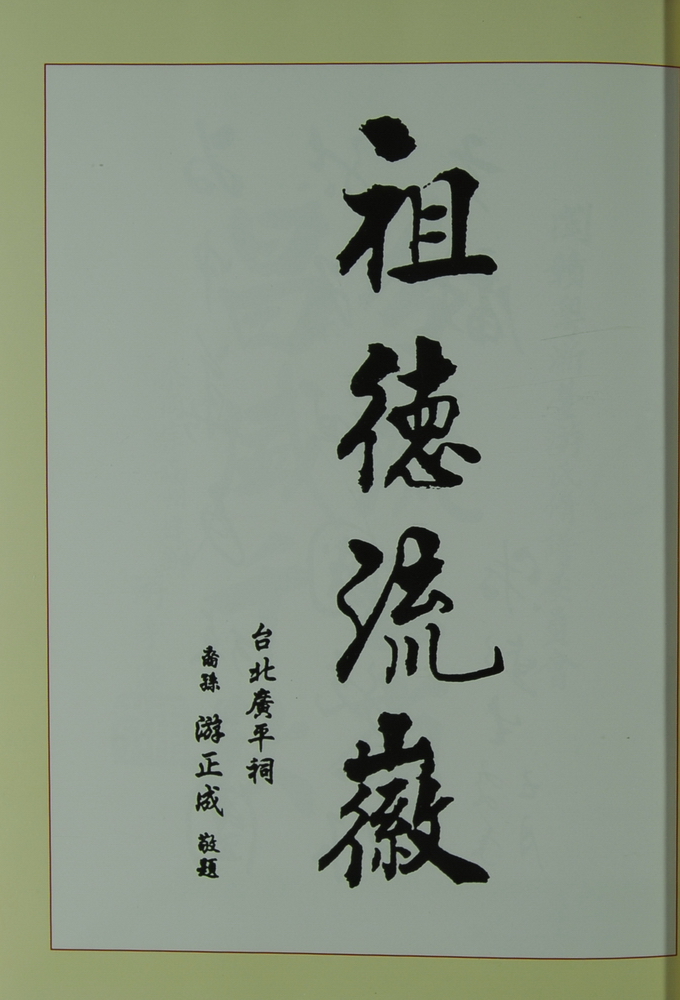 祖德流徽
台北廣平祠
裔孫 游正成 敬題